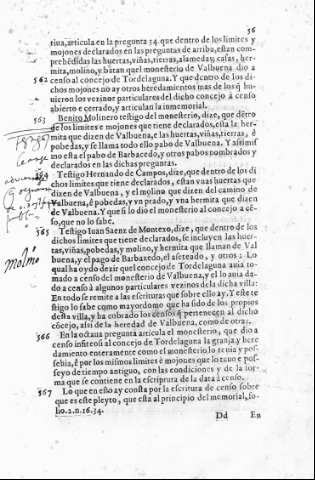 56
tiua, articula en la pregunta 34. que dentro de los limites y
mojones declarados en las preguntas de arriba, estan com-
prehēdidas las huertas, viñas, tierras, alamedas, casas, her-
mita, molino, y bitan quel monesterio de Valbuena dio a
562 censo al concejo de Tordelaguna. Y que dentro de los di-
chos mojones no ay otros heredamientos mas de los q̄ hu-
uieron los vezinos particulares del dicho concejo à censo
abierto e cerrado, y articulan la inmemorial.
563 Benito Molinero testigo del monesterio, dize, que dētro
de los limites e mojones que tiene declarados, esta la her-
mita que dizen de Valbuena, e las huertas, viñas, tierras, é
pobedas, y se llama todo ello pabo de Valbuena. Y assimis
mo esta el pabo de Barbacedo, y otros pabos nombrados y
declarados en las dichas preguntas.
564 Testigo Hernando de Campos, dize, que dentro de los di
chos limites que tiene declarados, estan unas huertas que
dizen de Valbuena, y el molino que dizen del camino de
Valbuena, é pobedas, y vn prado, y vna hermita que dizen
de Valbuena. Y que si lo dio el monesterio al concejo a cē-
so, que no lo sabe.
565 Testigo Iuan Saenz de Montexo, dize, que dentro de los
dichos limites que tiene declarados, se incluyen las huer-
tas, viñas, pobedas, y molino, y hermita que llaman de Val
buena, y el pago de Barbacedo, el afeteado, y otros: Lo
qual ha oydo dezir quel concejo de Tordelaguna auia to-
mado a censo del monesterio de Valbuena, y el lo auia da-
do a censo à algunos particulares vezinos de la dicha villa:
En todo se remite a las escrituras que sobre ello ay. Y este te
stigo lo sabe como mayordomo que ha sido de los propios
desta villa, y ha cobrado los censos q̄ pertenecen al dicho
cōcejo, assi de la heredad de Valbuena, como de otras.
566 En la octaua pregunta articula el monesterio, que dio a
censo infiteosi al concejo de Tordelaguna la granja y here
damiento enteramente como el monesterio lo tenia y pos-
sebia, é por los mismos limites é mojones que lo tuuo e pos-
seyo de tiempo antiguo, con las condiciones y de la for-
ma que se contiene en la escriptura de la data à censo.
567 Lo que en esto ay consta por la escritura de censo sobre
que es este pleyto, que esta al principio del memorial, fo-
lio. 2. n. 16. 34.
Dd En
Molino